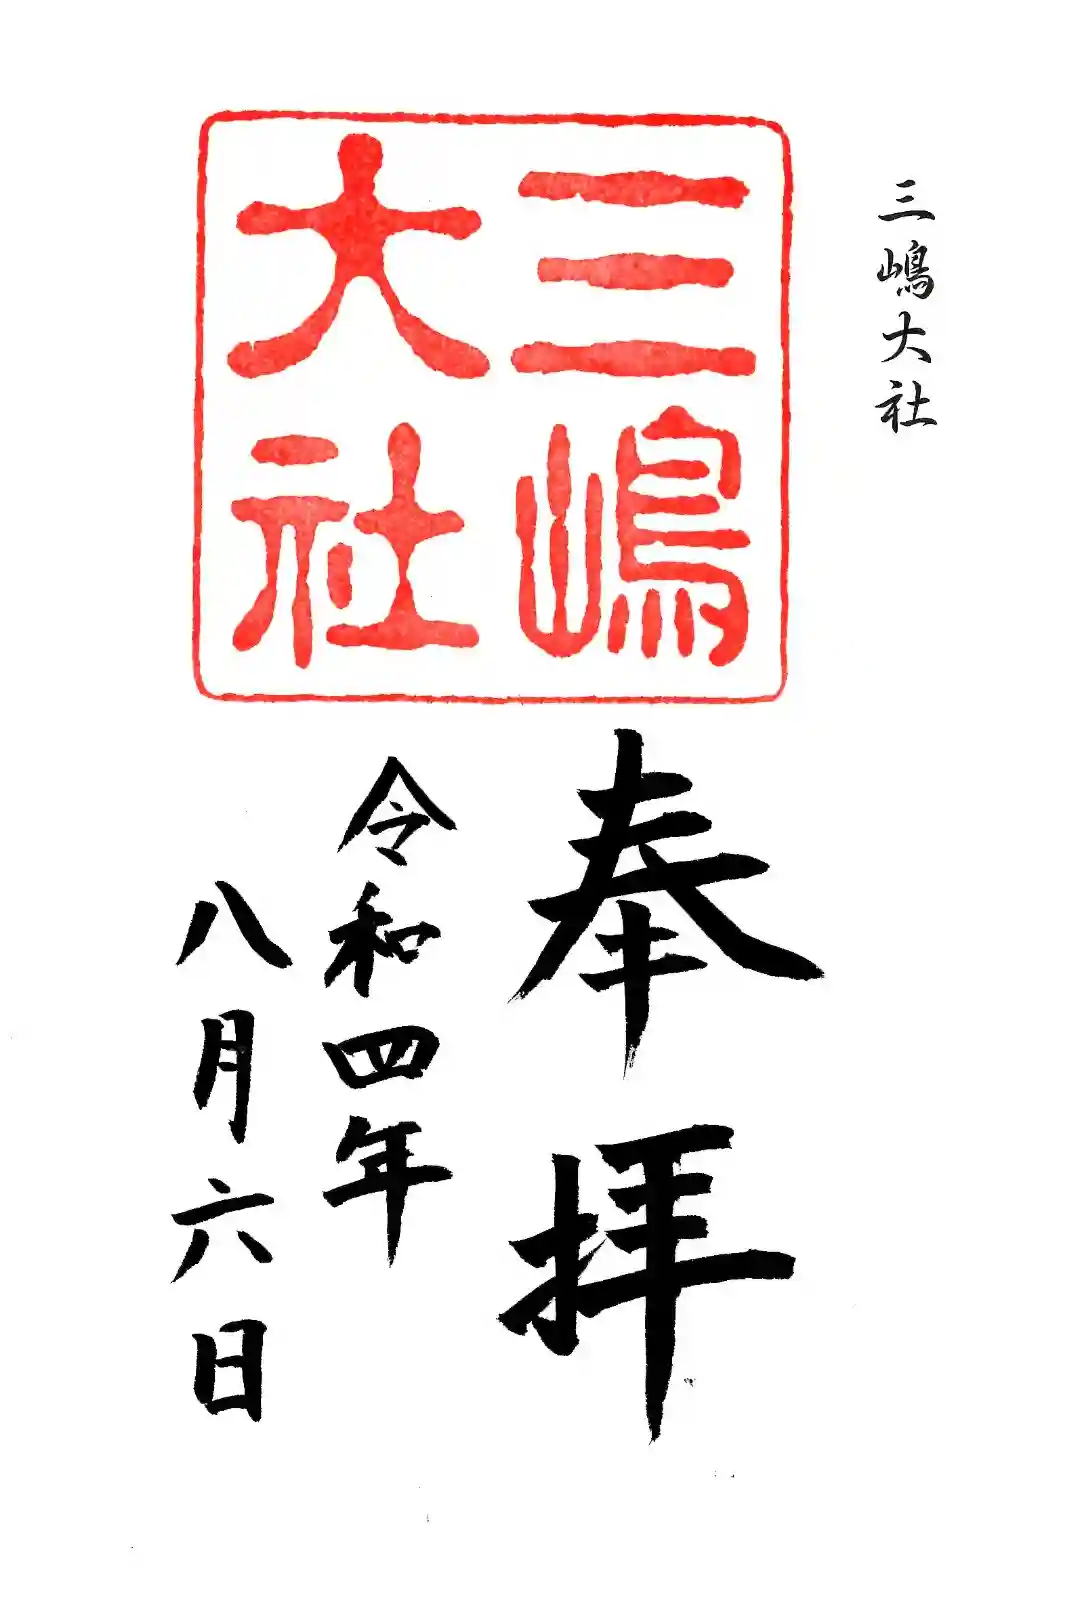 三嶋大社
三嶋
大社
奉拝
令和四年
八月六日